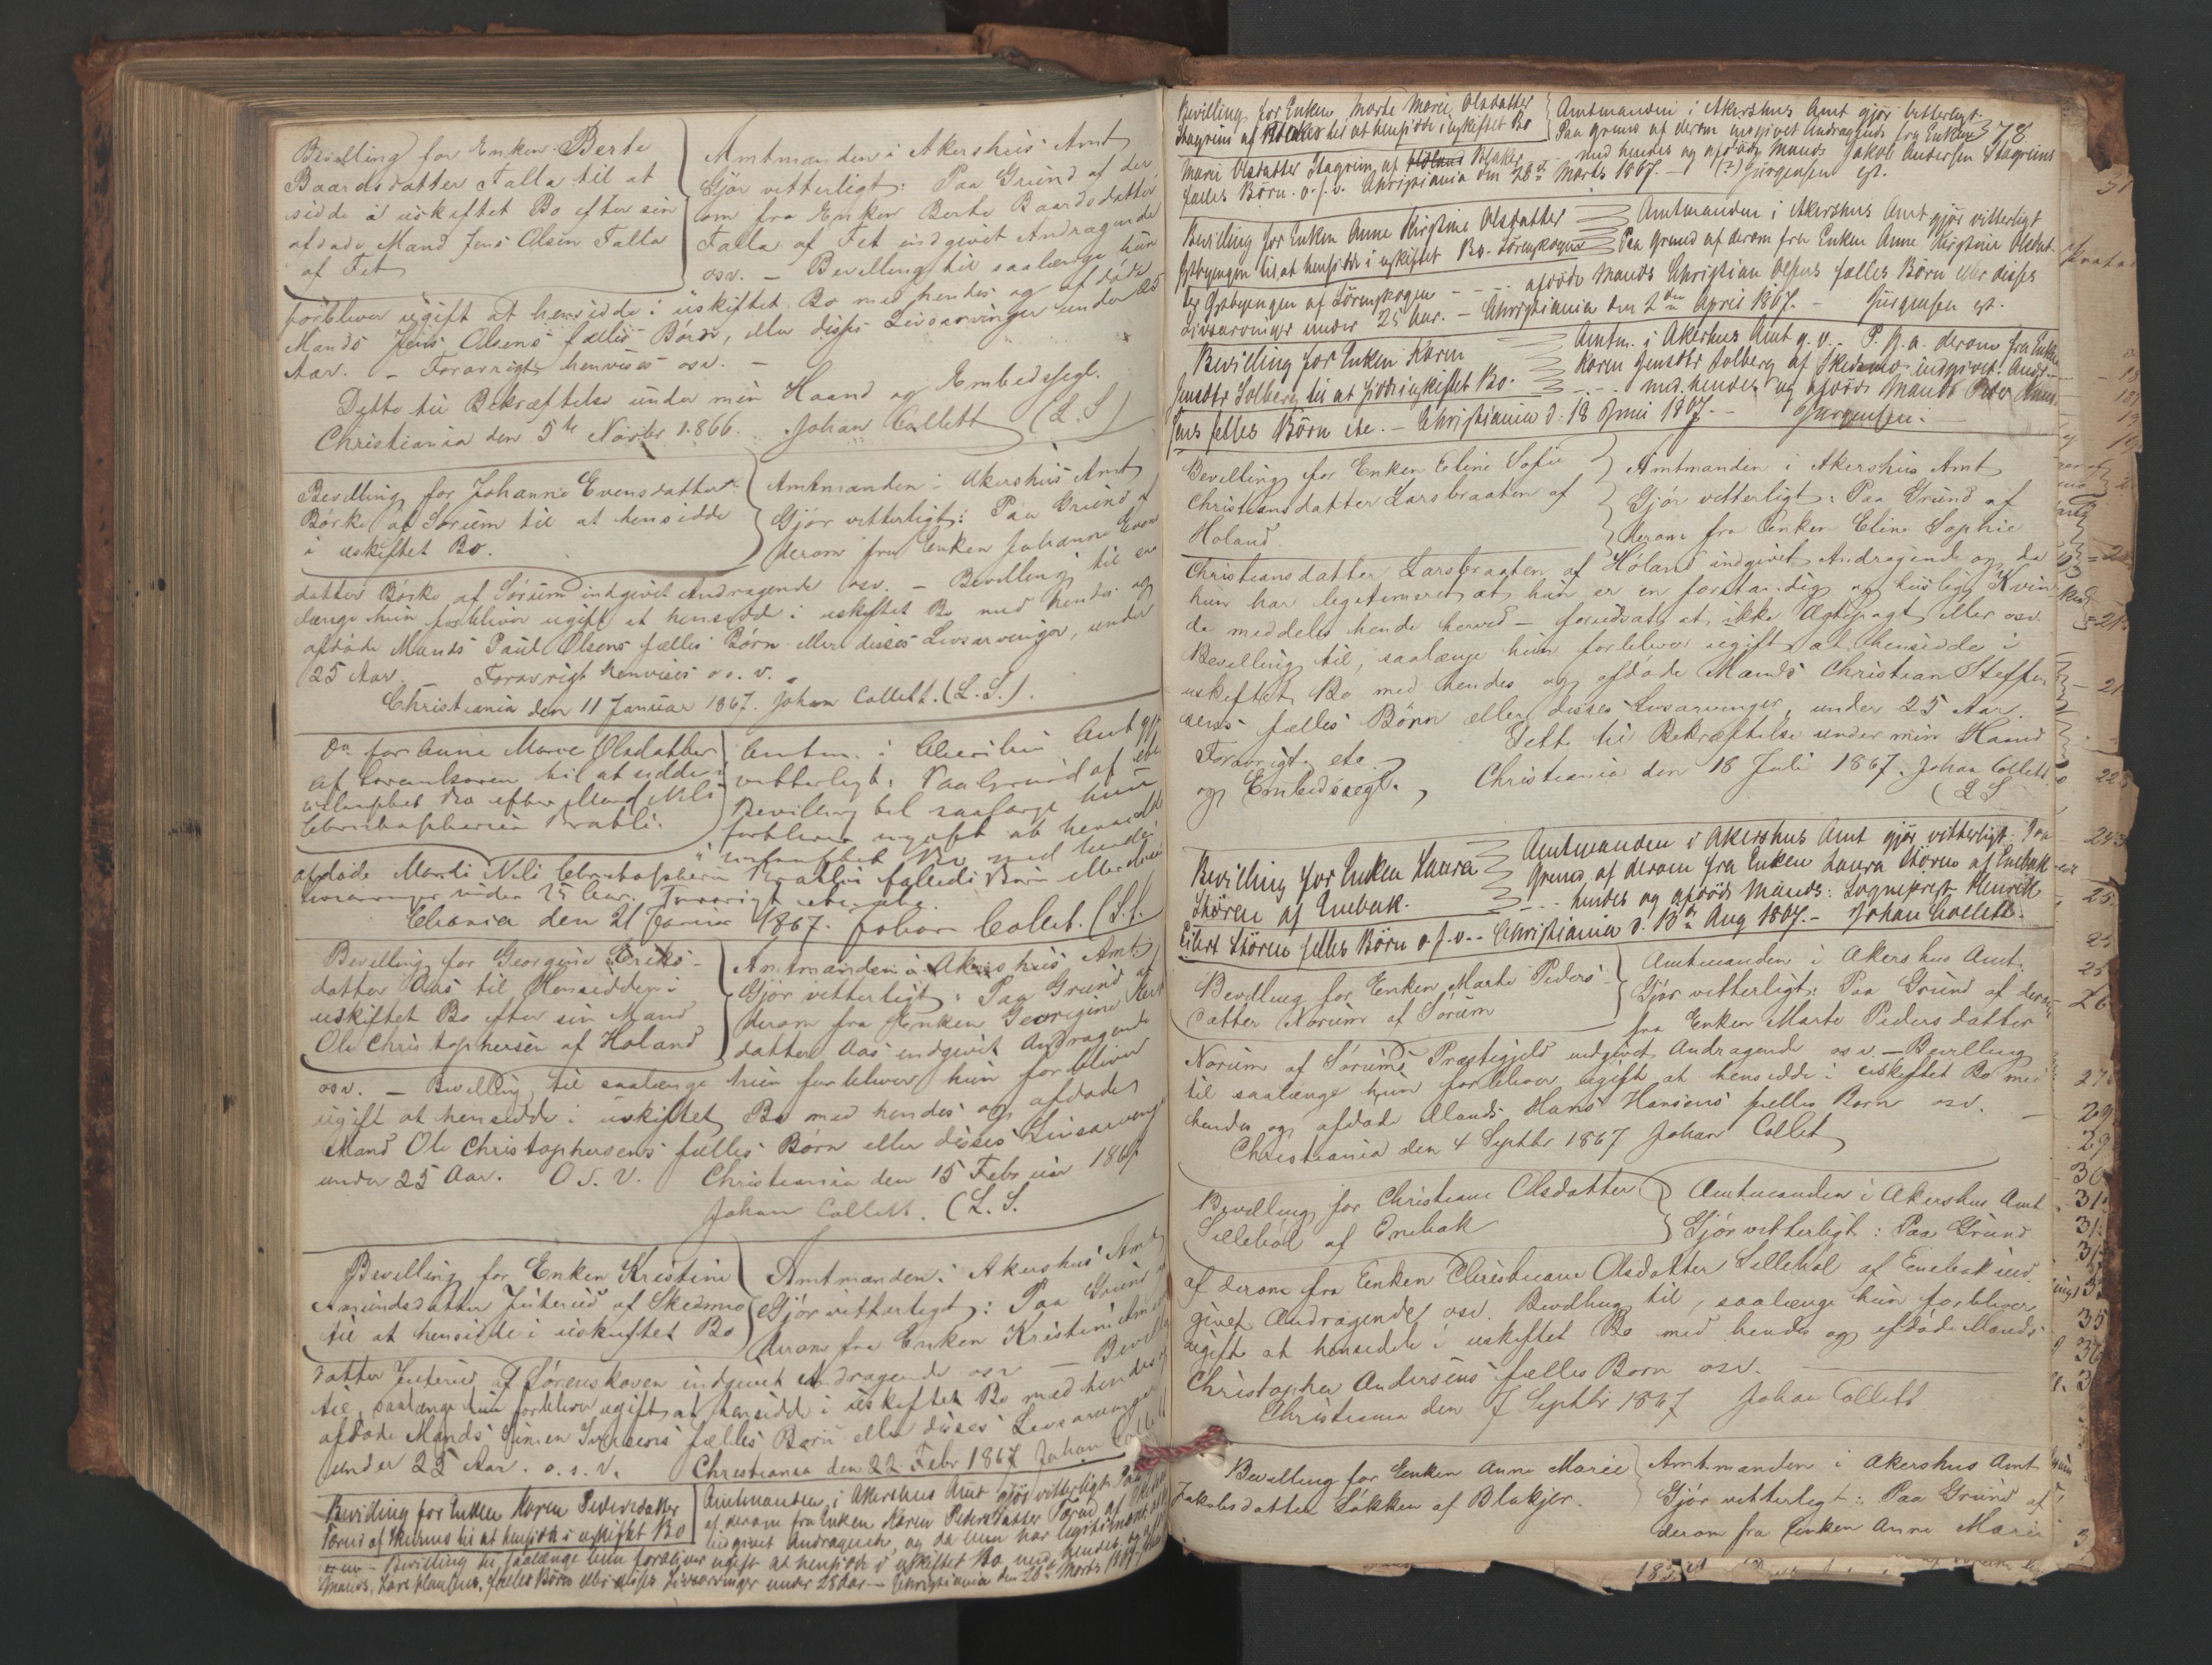 Bevilling for Enken Berte
Baardsdatter Falla til at
sidde i uskiftet Bo efter sin
afdøde Mand Jens Olsen Falla
af Fet
Amtmanden i Akershus Amt
Gjør vitterligt: Paa Grund af der
om fra Enken Berte Baardsdatter
Falla af Fet indgivet Andragende
osv. – Bevilling til saalænge hun
forbliver ugift at hensidde i uskiftet Bo med hendes og afdøde
Mands Jens Olsens fælles Børn, eller disses Livsarvinger under 25
Aar. – Forøvrigt henvises osv. –
Dette til Bekræftelse under min Haand og Embedssegl.
Christiania den 5te Novbr 1866. Johan Collett (L.S)
Bevilling for Johanne Evensdatter
Børke af Sørum til at hensidde
i uskiftet Bo.
Amtmanden i Akershus Amt
Gjør vitterligt: Paa Grund af
derom fra Enken Johanne Evens
datter Børke af Sørum indgivet Andragende osv. – Bevilling til saa
længe hun forbliver ugift at hensidde i uskiftet Bo med hendes og
afdøde Mands Paul Olsens fælles Børn eller disses Livsarvinger, under
25 Aar. Forøvrigt henvises o.s.v.
Christiania den 11 Januar 1867. Johan Collett. (L.S.).
Do for Anne Marie Olsdatter
af til at sidde i
uskiftet Bo efter Mand Nils
Christophersen
Amtm. i Akershus Amt gjør
vitterligt: Paa Grund af etc
Bevilling til saalænge hun
forbliver ugift at hensidde
i uskiftet Bo med hendes
afdøde Mands Nils Christophersen fælleds Børn eller disses
Livsarvinger under 25 Aar. Forøvrigt etc. etc.
Chania den 21 Januar 1867. Johan Collet. (L.S.
Bevilling for Georgine
datter Aas til Hensidden i
uskiftet Bo efter sin Mand
Ole Christophersen af Høland
Amtmanden i Akershus Amt
Gjør vitterligt: Paa Grund af
derom fra Enken Georgine
datter Aas indgivet Andragende
osv. – Bevilling til saalænge hun forbliver hun forbliver
ugift at hensidde i uskiftet Bo med hendes og afdødes
Mand Ole Christophersens fælles Børn eller disses Livsarvinger
under 25 Aar. O.S.V. Christiania den 15 Februar 1867
Johan Collett. (L.S.
Bevilling for Enken Kristine
Amundsdatter Julerud af Skedsmo
til at hensidde i uskiftet Bo
Amtmanden i Akershus Amt
Gjør vitterligt: Paa Grund af
derom fra Enken Kristine
datter Julerud af Lørenskoven indgivet Andragende osv – Bevilling
til, saalænge hun forbliver ugift at hensidde i uskiftet Bo med hendes og
afdøde Mands Simen fælles Børn eller disses Livsarvinger
under 25 Aar. o.s.v. Christiania den 22 Febr 1867 Johan Collett
Bevilling for Enken Karen Pedersdatter
af Skedsmo til at hensidde i uskiftet Bo
Amtmanden i Akershus Amt gjør vitterligt: Paa
af derom fra Enken Karen Pedersdatter af Skedsmo
indgivet Andragende, og da hun har legitimeret
– Bevilling til saalænge hun forbliver ugift at hensidde i uskiftet Bo med hendes og
Mands, Lars fælles Børn eller disses Livsarvinger under 25 Aar – Christiania den 26de Marts 1867.
Bevilling for Enken Marte Marie Olsdatter
Stagrim af Blaker til at hensidde i uskiftet Bo
Amtmanden i Akershus Amt gjør vitterligt.
Paa grund af derom indgivet Andragende fra Enken
78
Marie Olsdatter Stagrim af Blaker med hendes og afdøde Mands Jakob Andersen Stagrims
fælles Børn. o.s.v. Christiania den 28de Marts 1867. – Jürgensen cst.
Bevilling for Enken Anne Kirstine Olsdatter
Østbyengen til at hensidde i uskiftet Bo. Lørenskogen
Amtmanden i Akershus Amt gjør vitterligt
Paa Grund af derom fra Enken Anne Kirstine Olsdat-
ter Østbyengen af Lørenskogen – – – afdøde Mands Christian Olsens fælles Børn eller disses
Livsarvinger under 25 Aar. – Christiania den 2den April 1867. – Jürgensen cst.
Bevilling for Enken Karen
Jensdtr Solberg til at sidde i uskiftet Bo.
Amtm. i Akershus Amt g. v. P. g. a. derom fra Enken
Karen Jensdtr Solberg af Skedsmo indgivet Andr.
– – – med hendes og afdøde Mands Peder
sens fælles Børn etc. – Christiania d. 18 Juni 1867. – Jürgensen. –
Bevilling for Enken Eline Sofie
Christiansdatter Larsbraaten af
Høland.
Amtmanden i Akershus Amt
Gjør vitterligt: Paa Grund af
derom fra Enken Eline Sophie
Christiansdatter Larsbraaten af Høland indgivet Andragende og da
hun har legitimeret at hun er en forstandig og huslig Kvin-
de meddeles hende herved – forudsat at ikke Ægtepagt eller osv.
Bevilling til, saalænge hun forbliver ugift at hensidde i
uskiftet Bo med hendes og afdøde Mands Christian Steffen
sens fælles Børn eller disses Livsarvinger, under 25 Aar.
Forøvrigt etc. Dette til Bekræftelse under min Haand
og Embedssegl. Christiania den 18 Juli 1867. Johan Collett
(L S
Bevilling for Enken Laura
Støren af Enebak.
Amtmanden i Akershus Amt gjør vitterligt. Paa
Grund af derom fra Enken Laura Støren af Enebak
– – – hendes og afdøde Mands: Sogneprest Henrik
Eilert Støren fælles Børn o.s.v. – Christiania d. 13de Aug 1867. – Johan Collett.
Bevilling for Enken Marte Peders-
datter Norum af Sørum
Amtmanden i Akershus Amt.
Gjør vitterligt: Paa Grund af derom
fra Enken Marte Pedersdatter
Norum af Sørum Præstegjeld indgivet Andragende osv. – Bevilling
til saalænge hun forbliver ugift at hensidde i uskiftet Bo med
hendes og afdøde Mands Hans Hansens fælles Børn osv. –
Christiania den 4 Septbr 1867 Johan Collet
Bevilling for Christiane Olsdatter
Sillebøl af Enebak
Amtmanden i Akershus Amt
Gjør vitterligt: Paa Grund
af derom fra Enken Christiane Olsdatter Sillebøl af Enebak ind
givet Andragende osv. Bevilling til, saalænge hun forbliver
ugift at hensidde i uskiftet Bo med hendes og afdøde Mands
Christopher Andersens fælles Børn osv. –
Christiania den 7 Septbr 1867 Johan Collett
Bevilling for Enken Anne Marie
Jakobsdatter Løkken af Blakjer.
Amtmanden i Akershus Amt
Gjør vitterligt: Paa Grund af
derom fra Enken Anne Marie